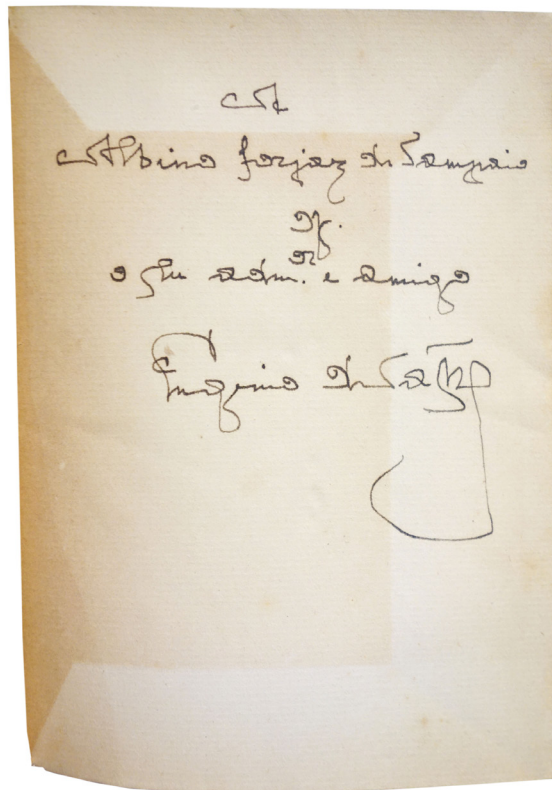 A
Albino Forjaz de Sampaio
of.
o seu adm.or e amigo
Eugenio de Castro